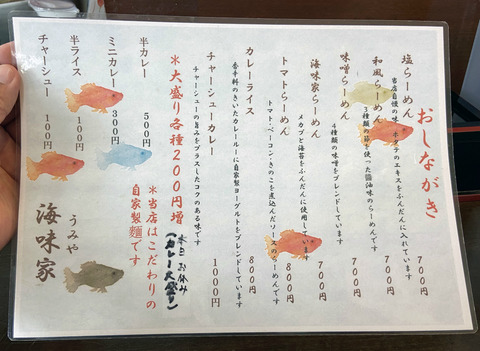 おしながき
塩らーめん 700円
当店自慢の味 ホタテのエキスをふんだんに入れています
和風らーめん 700円
3種類の節を使った醤油味のらーめんです
味噌らーめん 700円
4種類の味噌をブレンドしています
海味家らーめん 700円
メカブと海苔をふんだんに使用しています
トマトらーめん 800円
トマト・ベーコン・きのこを煮込んだソースのらーめんです
カレーライス 800円
香辛料のきいたカレールーに自家製ヨーグルトをブレンドしています
チャーシューカレー 1000円
チャーシューの旨みをプラスしたコクのある味です
*大盛り各種200円増
本日お休み
(カレー大盛り)
半カレー 500円
ミニカレー 300円
半ライス 100円
チャーシュー 100円
*当店はこだわりの
自家製麵です
うみや
海味家